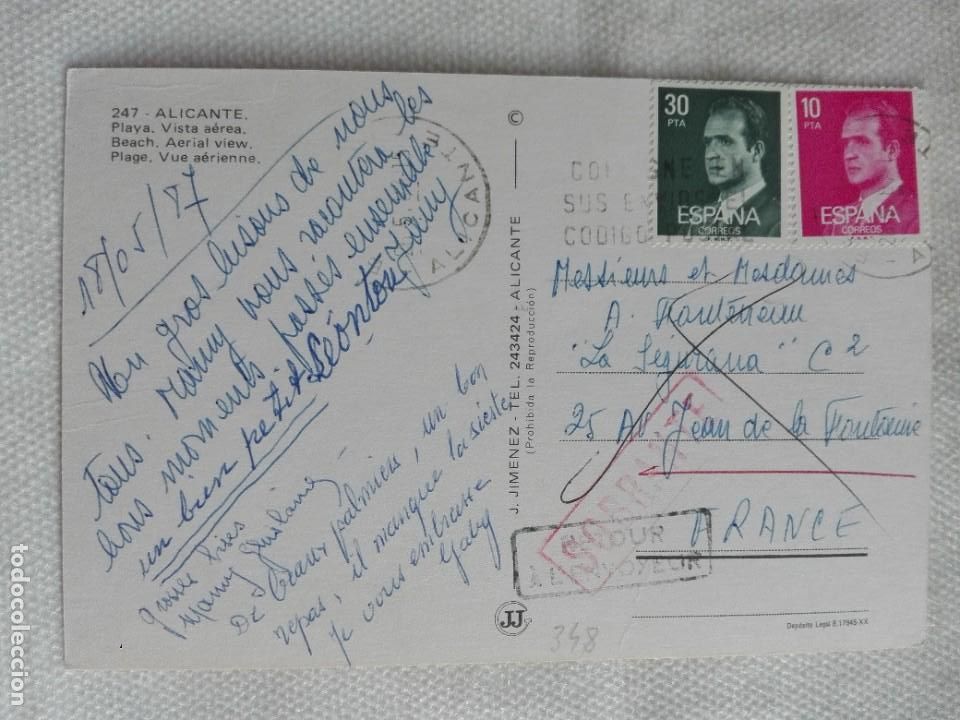 247 - ALICANTE.
Playa. Vista aérea.
Beach. Aerial view.
Plage. Vue aérienne.
18/05/87
gros bisous de nous
tous. nous racontera les
bons moments passés ensemble
un bien petit
De beaux palmiers, un bon
repas, il manque la sieste
Je vous embrasse
Gaby
©
J. JIMENEZ - TEL. 243424 - ALICANTE
(Prohibida la Reproducción)
JJ
ALICANTE
SUS
CODIGO
30
PTA
ESPAÑA
CORREOS
10
PTA
ESPAÑA
CORREOS
Messieurs et Mesdames
A.
"La C2
25 Av. Jean de la Fontaine
FRANCE
RETOUR
À L'ENVOYEUR
348
Depósito Legal B. 17945-XX
todocoleccion.net